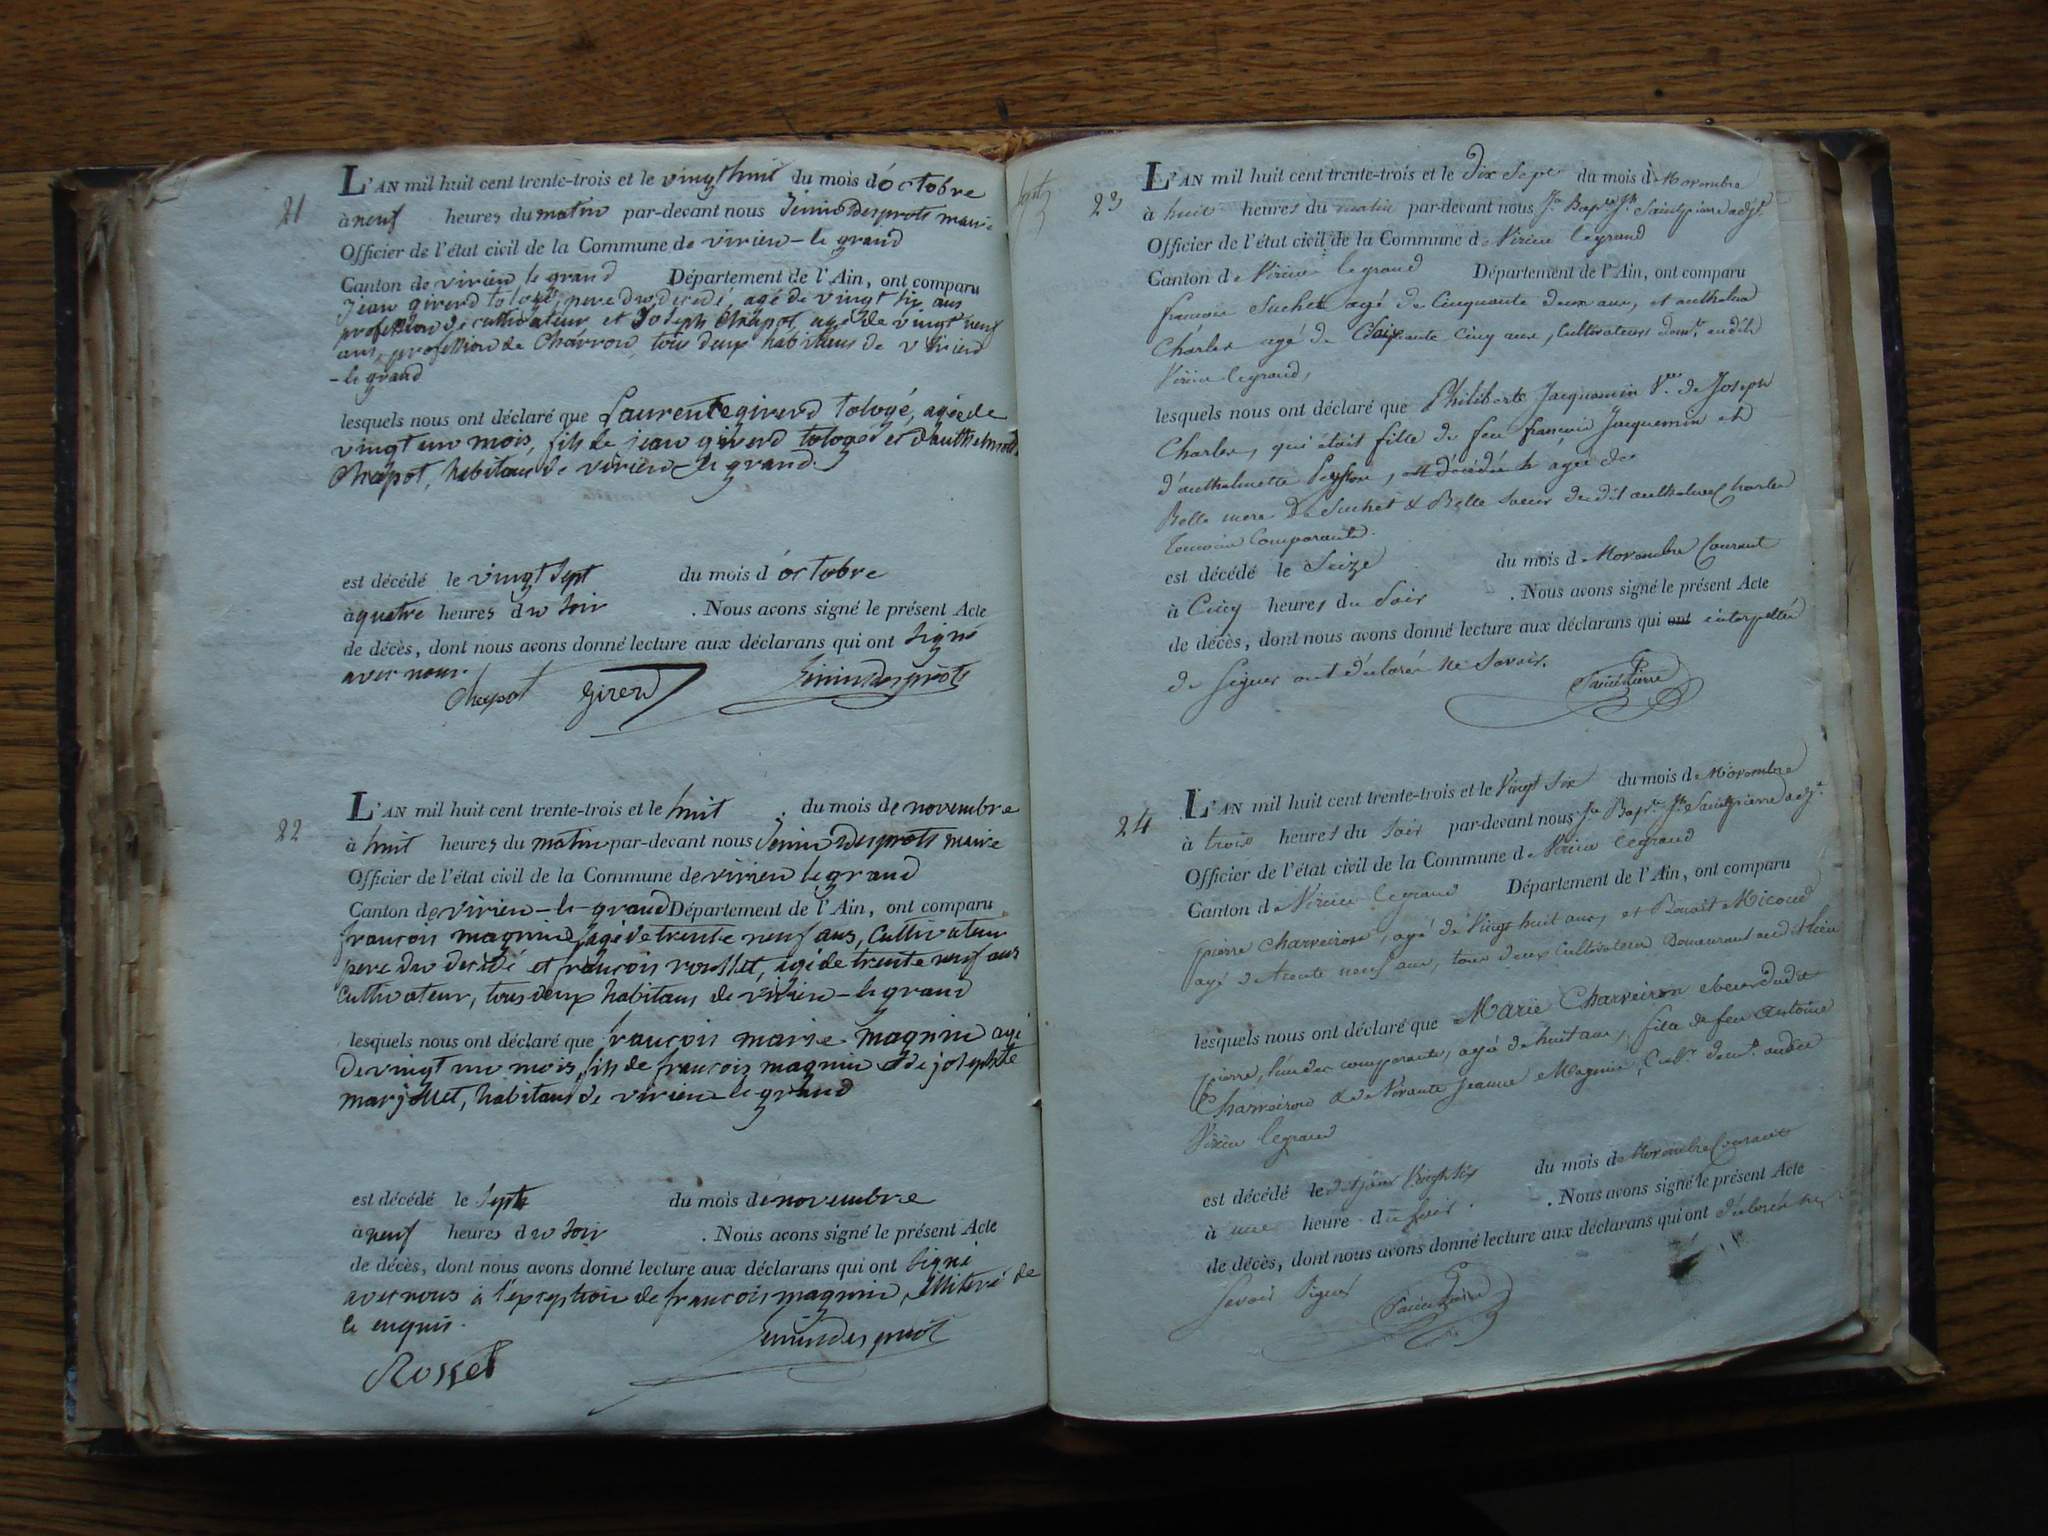 21
L'AN mil huit cent trente-trois et le vingt huit du mois d'octobre
à neuf heures du matin par-devant nous maire
Officier de l'état civil de la Commune de virieu-le grand
Canton de virieu le grand Département de l'Ain, ont comparu
jean girerd pere du decedé, agé de vingt six ans
profession de cultivateur et Joseph Chapot, agé de vingt neuf
ans, profession de Charron, tous deux habitans de virieu
-le grand
lesquels nous ont déclaré que Laurent girerd agé de
vingt un mois, fils de jean girerd et d'anthelmette
Chapot, habitans de virieu-le grand.
est décédé le vingt sept du mois d'octobre
à quatre heures du soir . Nous avons signé le présent Acte
de décès, dont nous avons donné lecture aux déclarans qui ont signé
avec nous.
Chapot Girerd
22
L'AN mil huit cent trente-trois et le huit du mois de novembre
à huit heures du matin par-devant nous maire
Officier de l'état civil de la Commune de virieu le grand
Canton de virieu-le-grand Département de l'Ain, ont comparu
francois magnin, agé de trente neuf ans, cultivateur
pere du decedé et francois agé de trente neuf ans
cultivateur, tous deux habitans de virieu-le grand
lesquels nous ont déclaré que francois marie magnin agé
de vingt un mois, fils de francois magnin et de josephte
marjollet, habitans de virieu le grand
est décédé le sept du mois de novembre
à neuf heures du soir . Nous avons signé le présent Acte
de décès, dont nous avons donné lecture aux déclarans qui ont signé
avec nous à l'exception de francois magnin, illiteré de
ce enquis.
Rosset
23
L'AN mil huit cent trente-trois et le dix sept du mois de Novembre
à huit heures du matin par-devant nous Jn Bapte Jh Saintpierre adjt
Officier de l'état civil de la Commune de Virieu legrand
Canton de Virieu legrand Département de l'Ain, ont comparu
francois Suchet agé de Cinquante deux ans, et anthelme
Charles agé de Soixante cinq ans, Cultivateurs domts audit
Virieu legrand,
lesquels nous ont déclaré que Philiberte Jacquemin Vve de Joseph
Charles, qui était fille de feu françois Jacquemin et
d'anthelmette Peysson, est décédée agée de
Belle mere de Suchet & Belle soeur dudit anthelme Charles
temoins Comparants.
est décédé le Seize du mois de Novembre Courant
à Cinq heures du Soir . Nous avons signé le présent Acte
de décès, dont nous avons donné lecture aux déclarans qui ont interpellés
de Signer ont déclaré ne Savoir.
Saintpierre
24
L'AN mil huit cent trente-trois et le Vingt Six du mois de Novembre
à trois heures du Soir par-devant nous Jn Bapte Jh Saintpierre adjt
Officier de l'état civil de la Commune de Virieu legrand
Canton de Virieu legrand Département de l'Ain, ont comparu
pierre Charveiron, agé de Vingt huit ans, et Benoit Micoud
agé de trente neuf ans, tous deux Cultivateurs Demeurant audit lieu
lesquels nous ont déclaré que Marie Charveiron soeur dudit
pierre, l'un des comparants, agée de huit ans, fille de feu antoine
Charveiron & de Vivante Jeanne Magnin, Cultr demt audit
Virieu legrand
est décédé le dit jour Vingt Six du mois de Novembre Courant
à une heure du Soir. . Nous avons signé le présent Acte
de décès, dont nous avons donné lecture aux déclarans qui ont déclaré ne
Savoir Signer
Saintpierre